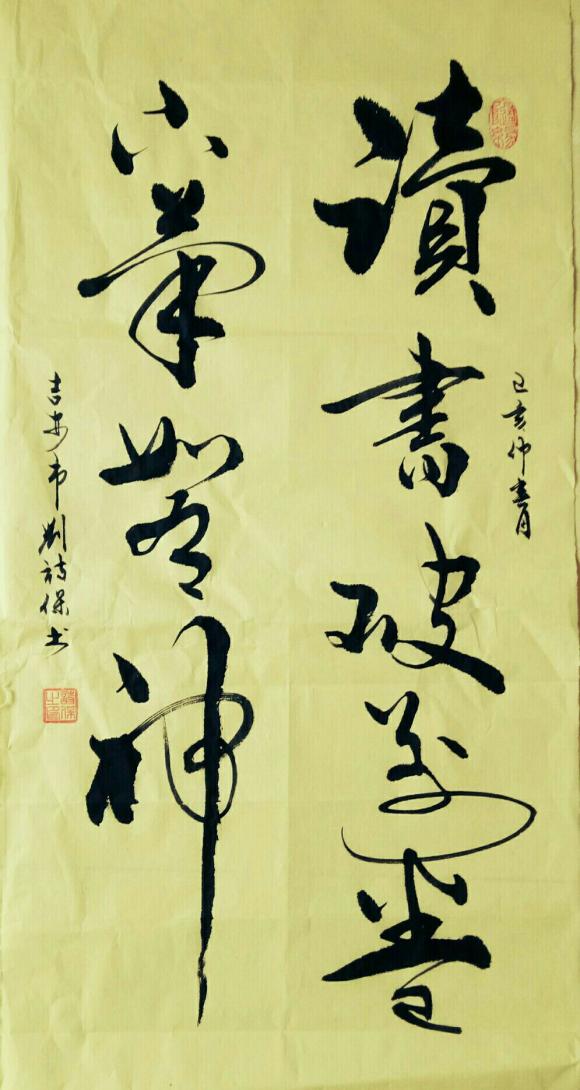 己亥仲春月
讀書破萬卷
下筆如有神
吉安市劉詩保书